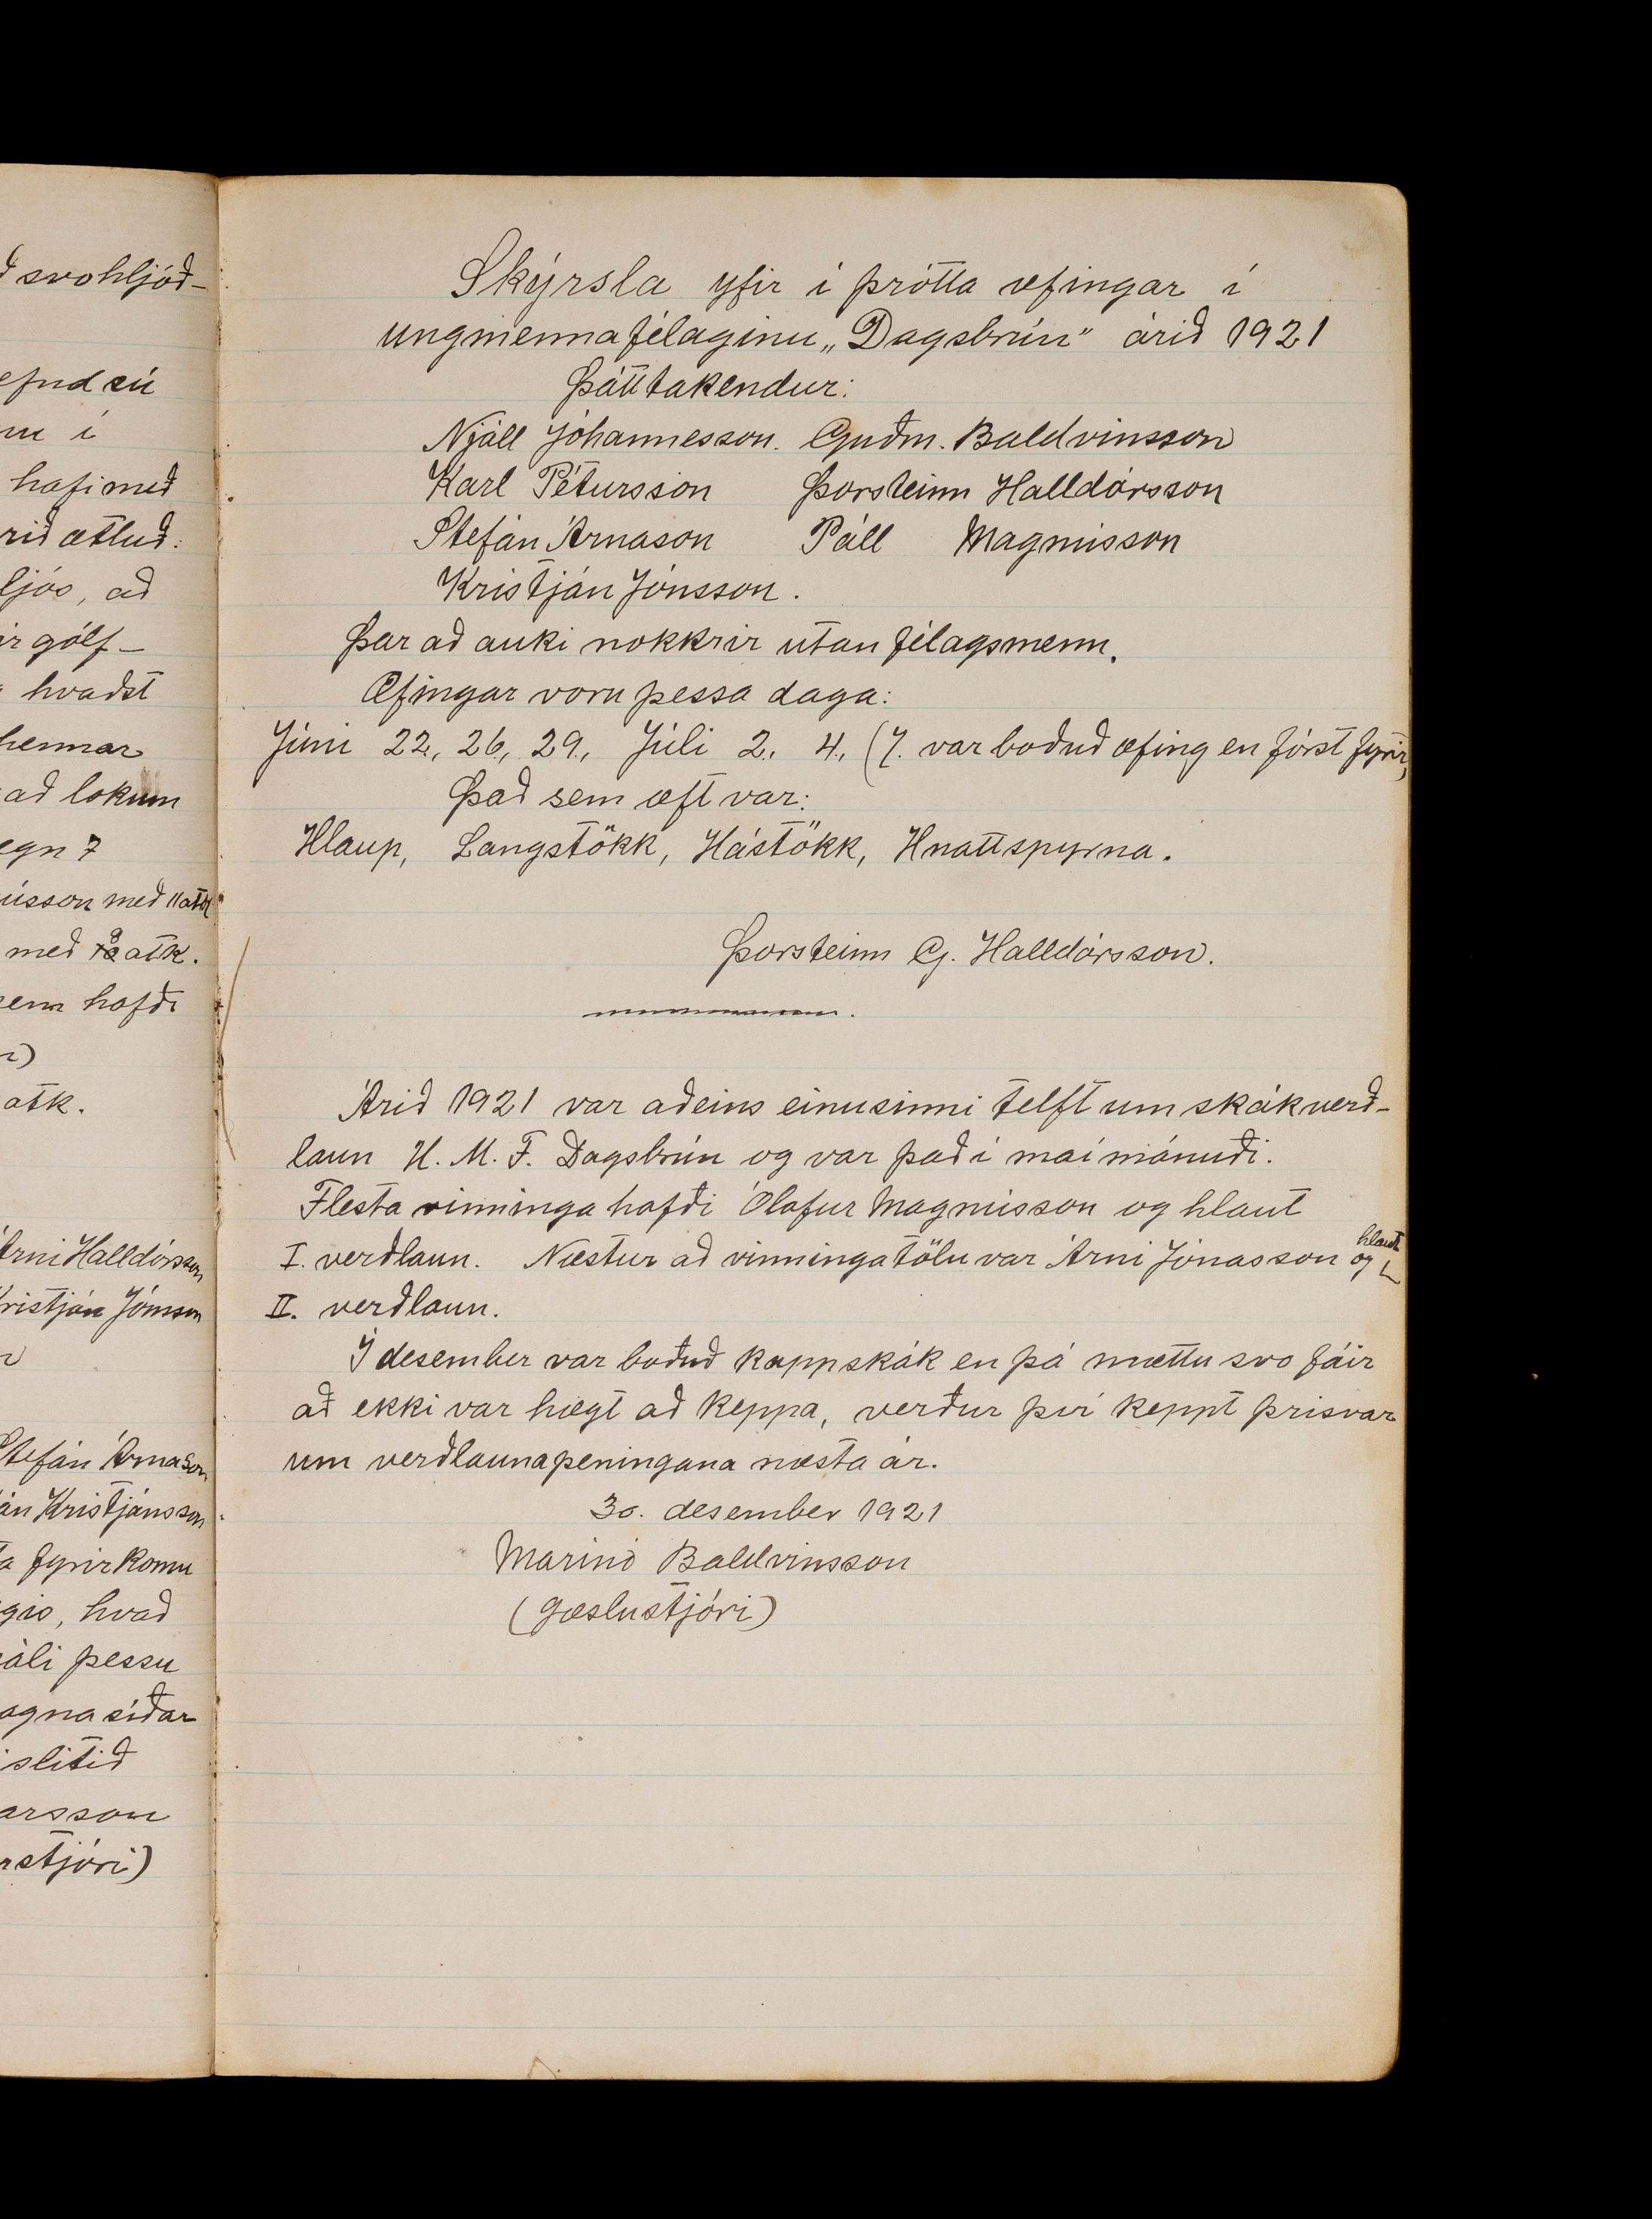 ð svohljóð-
efnd sú
m í
hafi með
rið ætluð.
ljós, að
ir gólf-
hvaðst
hennar
að lokum
egn 7
ússon með 11 atk
með 8 atk.
sem hafði
atk.
Árni Halldórsson
Kristján Jónsson
Stefán Árnason
án Kristjánsson
a fyrirkomu
gis, hvað
áli þessu
agna síðar
slitið
arsson
rstjóri)
Skýrsla yfir í þrótta æfingar í
ungmennafélaginu „Dagsbrún" árið 1921
Þátttakendur:
Njáll Jóhannesson. Guðm. Baldvinsson
Karl Pétursson Þorsteinn Halldórsson
Stefán Árnason Páll Magnússon
Kristján Jónsson.
Þar að auki nokkrir utanfélagsmenn.
Æfingar voru þessa daga:
Júni 22., 26., 29., Júli 2. 4., (7. var boðuð æfing en fórst fyrir)
Það sem æft var:
Hlaup, Langstökk, Hástökk, Hnattspyrna.
Þorsteinn G. Halldórsson.
Árið 1921 var aðeins einusinni telft um skákverð-
laun U. M. F. Dagsbrún og var það í maímánuði.
Flesta vinninga hafði Ólafur Magnússon og hlaut
I. verðlaun. Næstur að vinningatölu var Árni Jónasson og hlaut
II. verðlaun.
Í desember var boðuð kappskák en þá mættu svo fáir
að ekki var hægt að keppa, verður því keppt þrisvar
um verðlaunapeningana næsta ár.
30. desember 1921
Marinó Baldvinsson
(gæslustjóri)